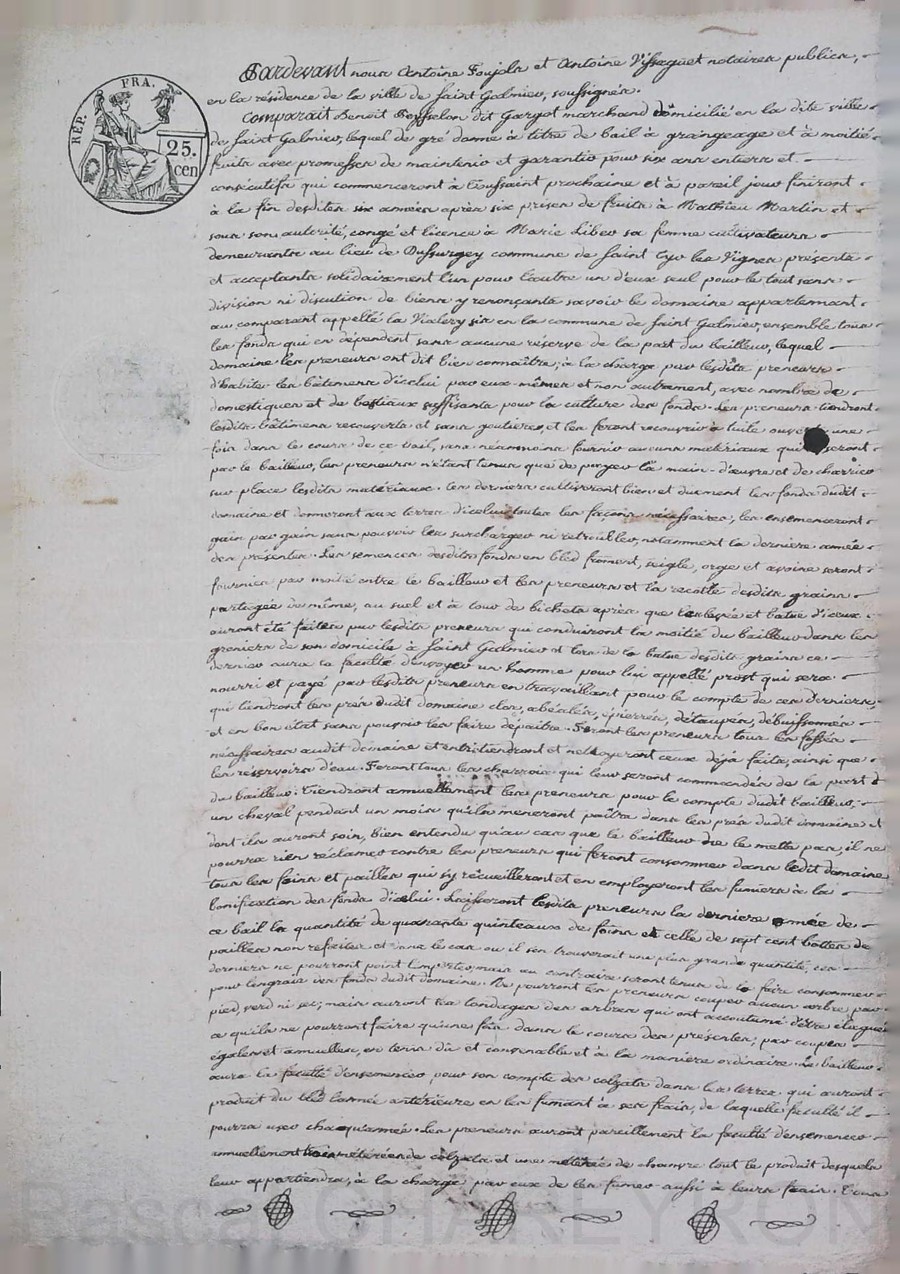 RÉP. FRA.
25. cen
Pardevant nous Antoine Foujols et Antoine Vissaguet notaires publics,
en la résidence de la ville de Saint Galmier, soussignés.
Comparait Benoit Bonselon dit Gargot marchand domicilié en la dite ville
de Saint Galmier, lequel de gré donne à titre de bail à graingeage et à moitié
fruits avec promesses de maintenir et garantir pour six ans entiers et
consécutifs qui commenceront à Toussaint prochaine et à pareil jour finiront
à la fin desdites six années après six prises de fruits à Mathieu Martin et
sous son autorité, congé et licence à Marie Liber sa femme cultivateurs
demeurants au lieu de Bussurgey commune de Saint Cyr les Vignes présents
et acceptants solidairement l'un pour l'autre un d'eux seul pour le tout sans
division ni discution de biens y renonçants savoir le domaine appartenant
au comparant appellé la Vialery sis en la commune de Saint Galmier, ensemble tous
les fonds qui en dépendent sans aucune réserve de la part du bailleur, lequel
domaine les preneurs ont dit bien connaître, à la charge par lesdits preneurs
d'habiter les bâtimens d'icelui par eux-mêmes et non autrement, avec nombre de
domestiques et de bestiaux suffisants pour la culture des fonds. Les preneurs tiendront
lesdits bâtimens recouverts et sans goutieres, et les feront recouvrir à tuile ouverte une
fois dans le cours de ce bail, sans néanmoins fournir aucuns matériaux qui seront
par le bailleur, les preneurs n'étant tenus que de payer la main-d'œuvre et de charrier
sur place lesdits matériaux. Ces derniers cultiveront bien et duement les fonds dudit
domaine et donneront aux terres d'icelui toutes les façons nécessaires, les ensemenceront
grain par grain sans pouvoir les surcharger ni retroubler, notamment la derniere année
des présentes. Les semences desdits fonds en bled froment, seigle, orge et avoine seront
fournies par moitié entre le bailleur et les preneurs et la recolte desdits grains
partagée de même, au suel et à tour de bichets après que levée et batue d'iceux
auront été faites par lesdits preneurs qui conduiront la moitié du bailleur dans les
greniers de son domicile à Saint Galmier et lors de la batue desdits grains ce
dernier aura la faculté d'envoyer un homme pour lui appellé prost qui sera
nourri et payé par lesdits preneurs en travaillant pour le compte de ces derniers,
qui tiendront les prés dudit domaine clos, abéalés, épierrés, détaupés, débuissonnés
et en bon état sans pouvoir les faire dépaitre. Feront les preneurs tous les fossés
nécessaires audit domaine et entretiendront et nettoyeront ceux déjà faits, ainsi que
les réservoirs d'eau. Feront tous les charrois qui leur seront commandés de la part
du bailleur. Tiendront annuellement les preneurs pour le compte dudit bailleur,
un cheval pendant un mois qu'ils meneront paître dans les prés dudit domaine et
dont ils auront soin, bien entendu qu'au cas que le bailleur ne le mette pas, il ne
pourra rien réclamer contre les preneurs qui feront consommer dans ledit domaine
tous les foins et pailles qui s'y recueilleront et en employeront les fumiers à la
bonification des fonds d'icelui. Laisseront lesdits preneurs la derniere année de
ce bail la quantité de quarante quinteaux de foins et celle de sept cent bottes de
pailles non refaites et dans le cas où il s'en trouverait une plus grande quantité, ces
derniers ne pourront point l'emporter, mais au contraire seront tenus de la faire consommer
pour l'engrais des fonds dudit domaine. Ne pourront les preneurs couper aucun arbre par
pied, verd ni sec; mais auront les tondages des arbres qui ont accoutumé d'être élagués
ce qu'ils ne pourront faire qu'une fois dans le cours des présentes, par coupes
égales et annuelles, en tems dû et convenable et à la maniere ordinaire. Le bailleur
aura la faculté d'ensemencer pour son compte des colzats dans les terres qui auront
produit du bled l'année antérieure en les fumant à ses frais, de laquelle faculté il
pourra user chaqu'année. Les preneurs auront pareillement la faculté d'ensemencer
annuellement trois métérées de colzats et une métérée de chanvre tout le produit desquels
leur appartiendra, à la charge par eux de les fumer aussi à leurs frais. Tous
Pascal CHARLEYRON